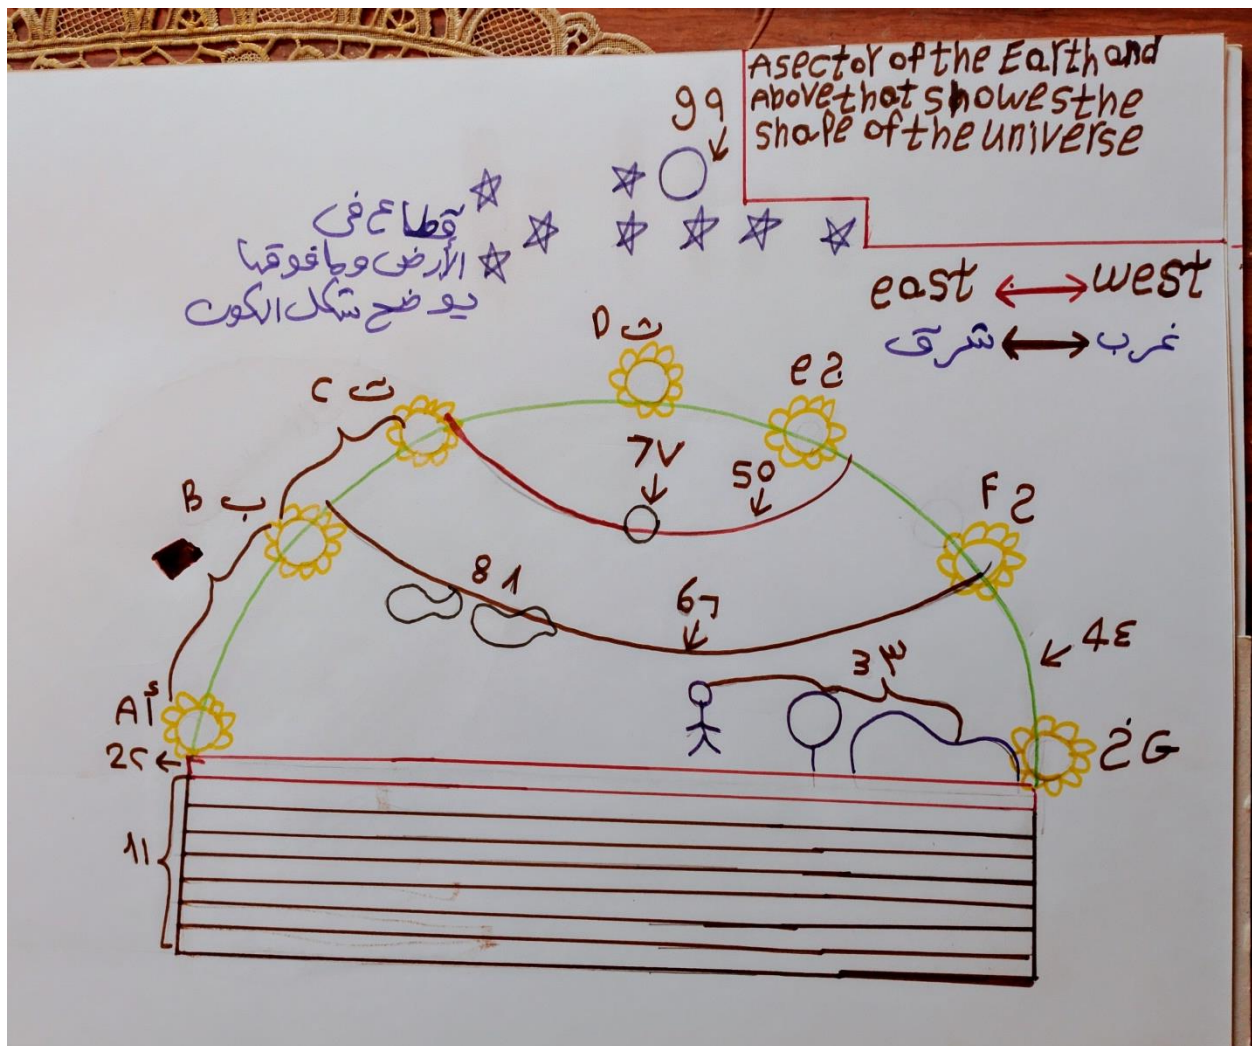 A sector of the Earth and
Above that showes the
shape of the universe
99
قطاع فى
الأرض وما فوقها
يوضح شكل الكون
east ↔ west
شرق ↔ غرب
D ث
C ت
e ج
7٧
5٥
B ب
F ح
8٨
6٦
4٤
3٣
A أ
2٢
خ G
1١